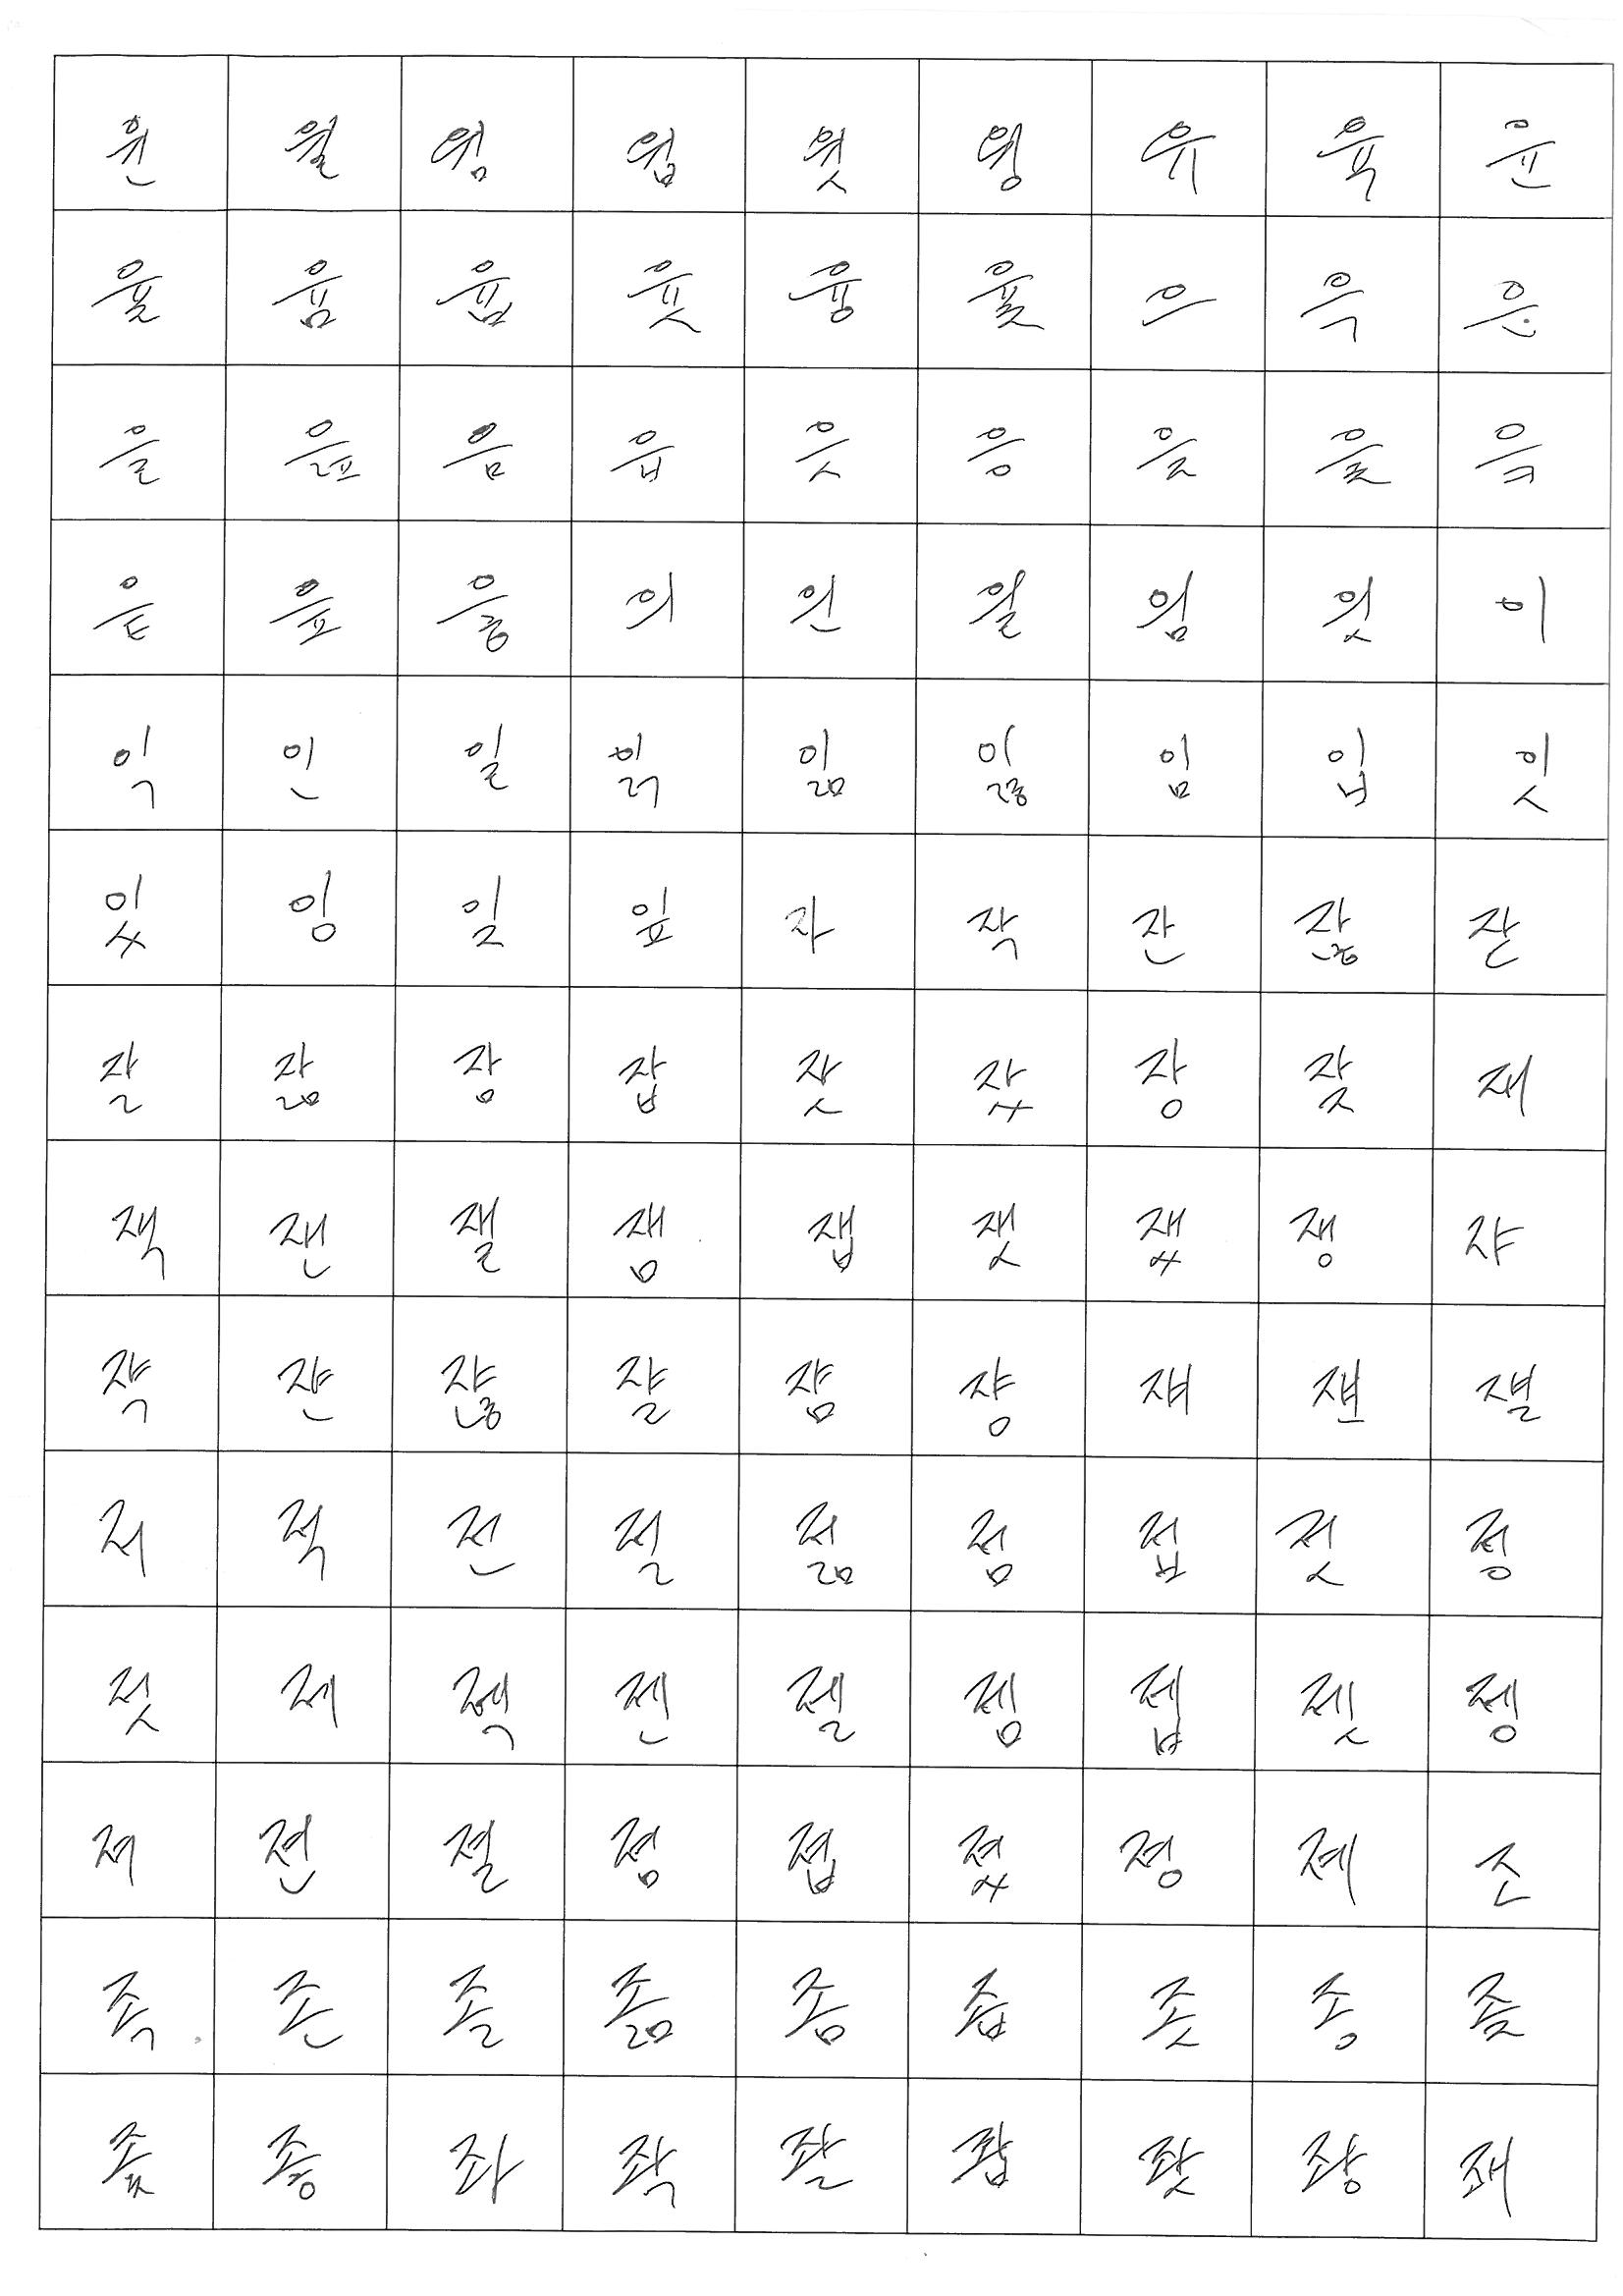 윈 윌 윔 윕 윗 윙 유 육 윤
율 윰 윱 윳 융 윷 으 윽 은
을 읊 음 읍 읏 응 읒 읓 읔
읕 읖 읗 의 읜 읠 읨 읫 이
익 인 일 읽 읾 잃 임 입 잇
있 잉 잊 잎 자 작 잔 잖 잗
잘 잚 잠 잡 잣 잤 장 잦 재
잭 잰 잴 잼 잽 잿 쟀 쟁 쟈
쟉 쟌 쟎 쟐 쟘 쟝 쟤 쟨 쟬
저 적 전 절 젊 점 접 젓 정
젖 제 젝 젠 젤 젬 젭 젯 젱
져 젼 졀 졈 졉 졌 졍 졔 조
족 존 졸 졺 좀 좁 좃 종 좆
좇 좋 좌 좍 좔 좝 좟 좡 좨